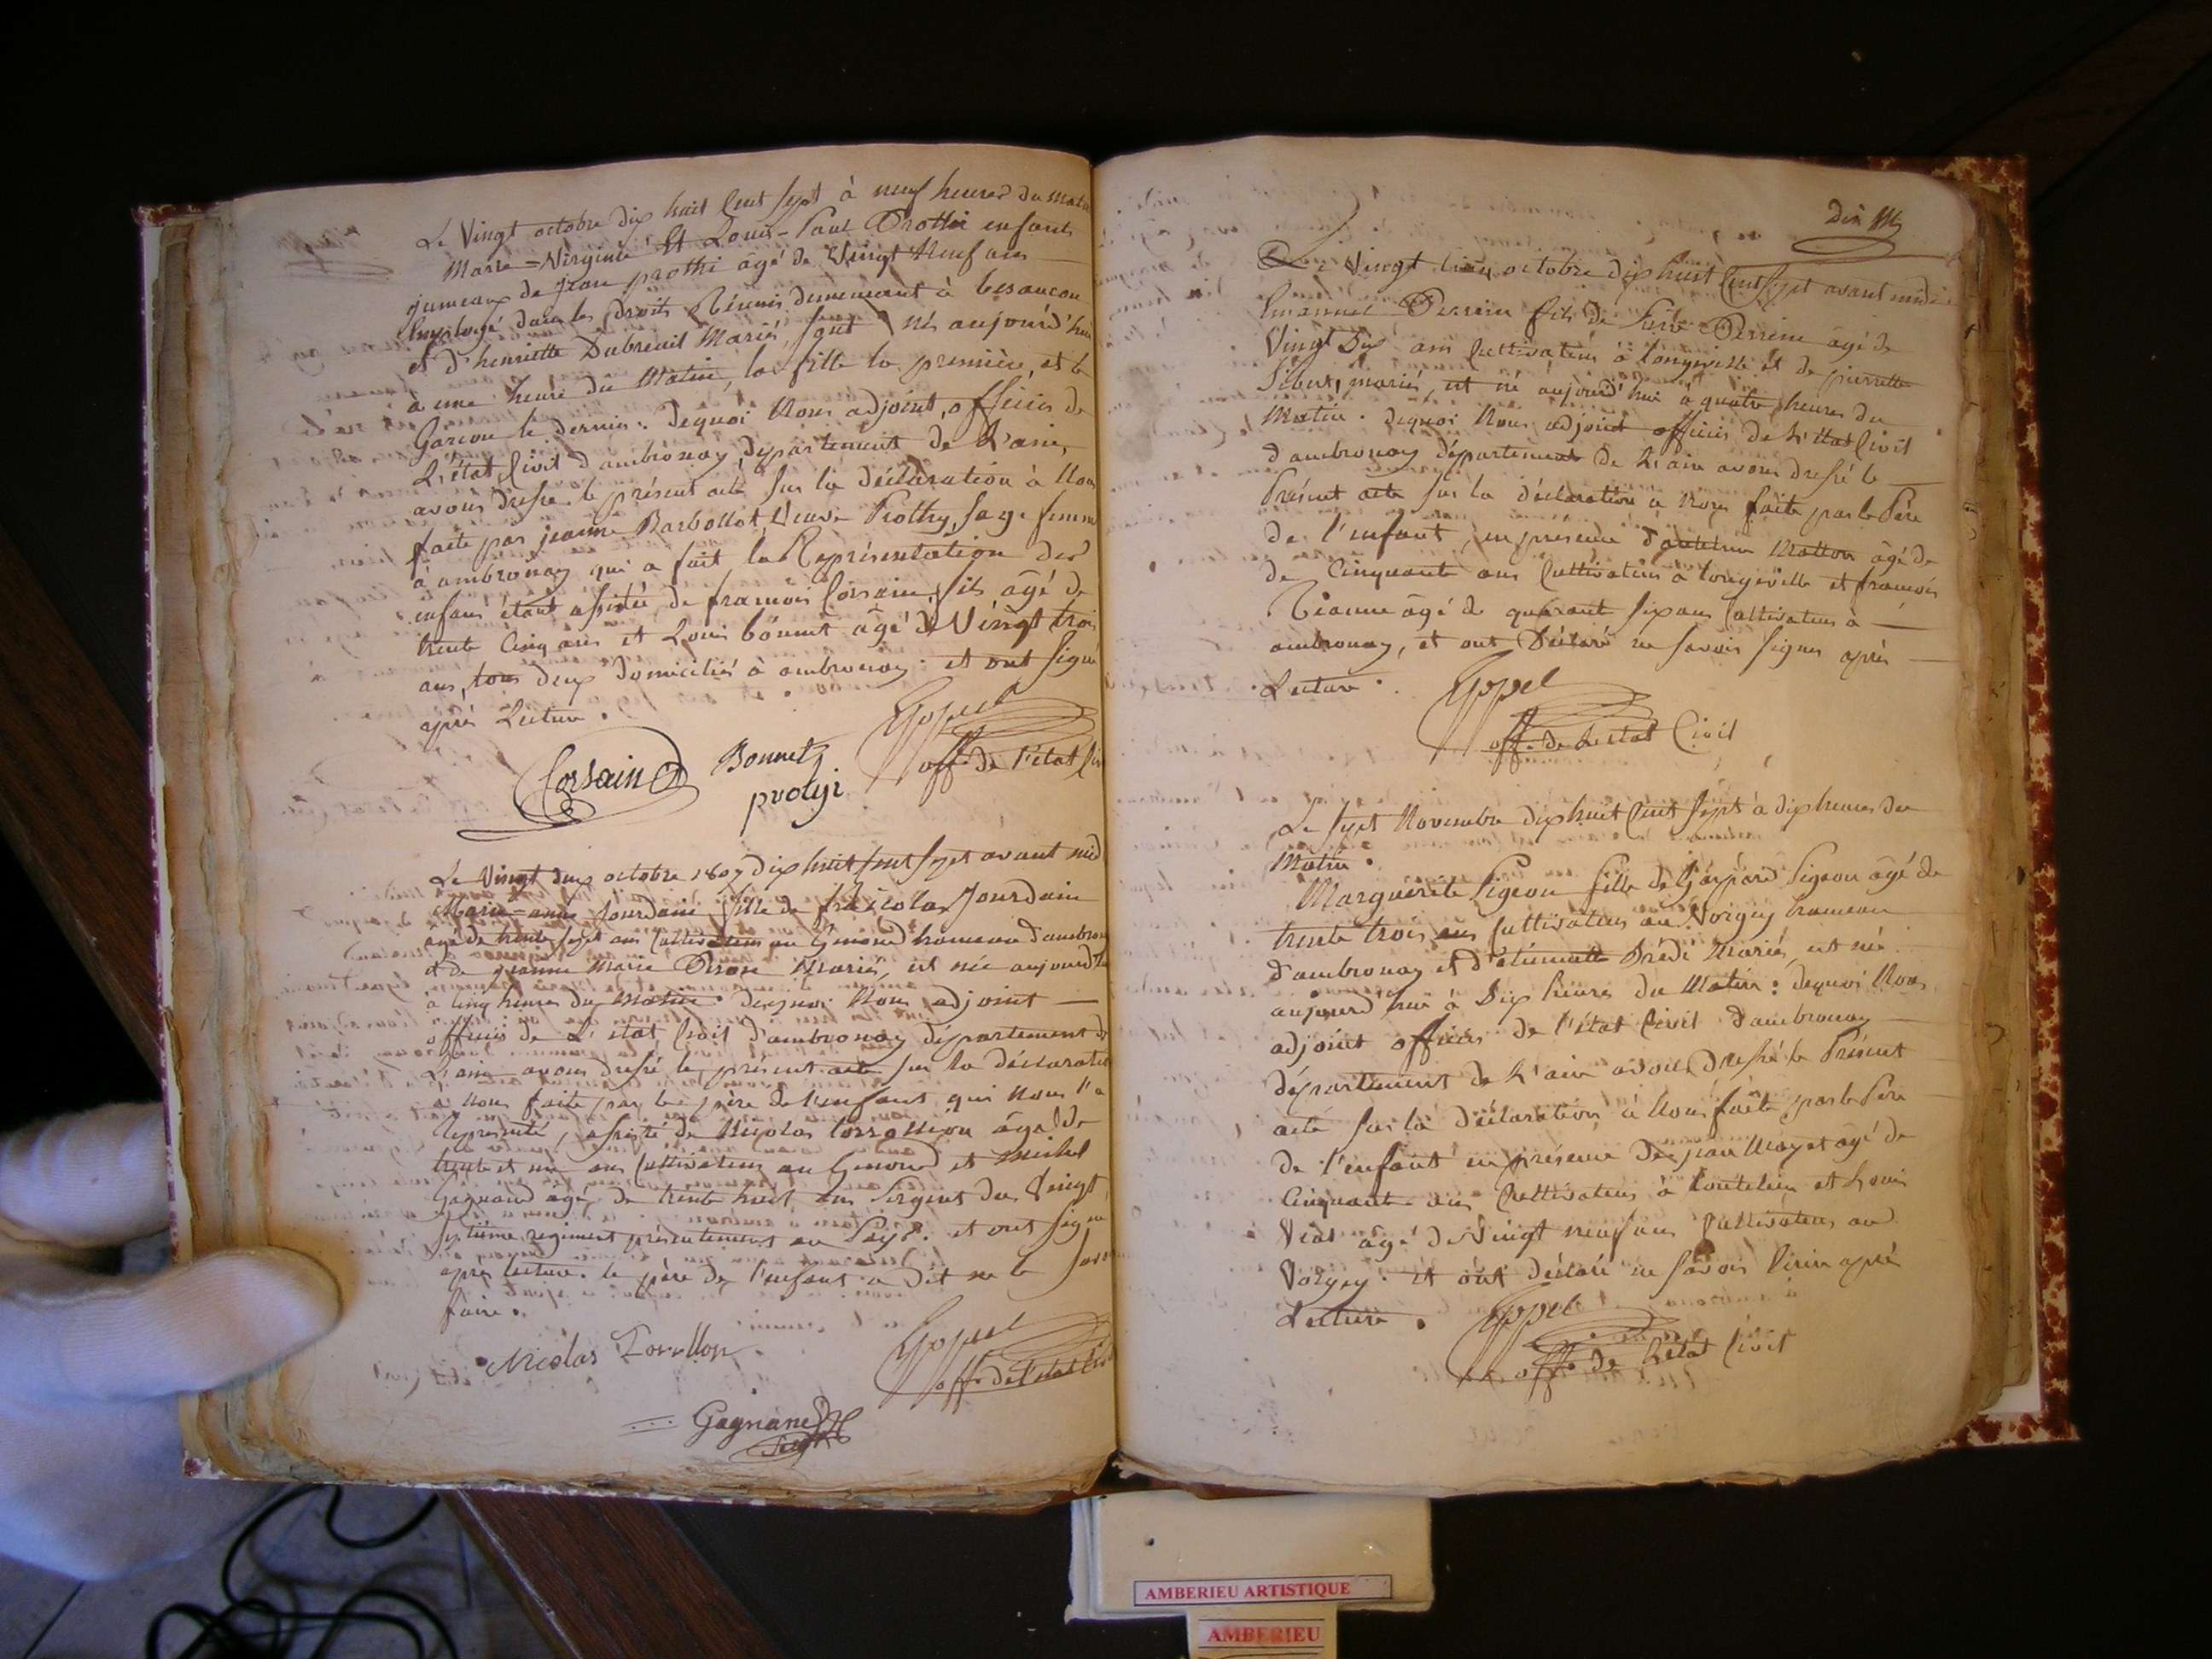 Le Vingt octobre dix huit Cent Sept à neuf heures du matin
Marie=Virginie Et Louis-Paul Prothi enfants
jumeaux de jean prothi âgé de Vingt Neuf ans
Employé dans les Droits Réunis demeurant à besancon
et d'henriette Dubreuil Mariés, sont nés aujourd'hui
à une heure du Matin, la fille la première, et le
Garcon le dernier. dequoi Nous adjoint, officier de
L'état Civil d'ambronay département de L'ain,
avons dressé le présent acte sur la déclaration à Nous
faite par jeanne Barbollat Veuve Prothy, sage femme
à ambronay qui a fait la Représentation des
enfans étant assistée de francois Corsain, fils âgé de
trente Cinq ans et Louis bonnet âgé de Vingt trois
ans, tous deux domiciliés à ambronay. et ont signé
après Lecture.
Corsain Bonnet Goppel
prothi off. de l'état Civ
Le Vingt deux octobre 1807 dix huit Cent Sept avant mid
Marie=anne Jourdain fille de Nicolas Jourdain
agé de trente sept ans Cultivateur au Genoud hameau d'ambron
et de jeanne Marie Mariés, est née aujourd'hu
à Cinq heures du Matin. dequoi Nous adjoint
officier de L'état Civil d'ambronay département de
L'ain avons dressé le présent acte sur la déclaration
à Nous faite par le père de l'enfant qui Nous l'a
Représenté, assisté de Nicolas âgé de
trente et un ans Cultivateur au Genoud et Michel
Gagnard agé de trente huit ans Sergent du Vingt
Septième régiment présentement au Pays. et ont signé
après lecture. le père de l'enfant a dit ne le savoir
faire.
Nicolas Goppel
off. de l'état Civ
Gagnard
Dix
Le Vingt octobre dix huit Cent Sept avant midi
Emanuel Perrin fils de Perrin âgé de
Vingt Six ans Cultivateur à longeville et de pierrette
Sibert, mariés, est né aujourd'hui à quatre heures du
Matin. dequoi Nous adjoint officier de L'état Civil
d'ambronay département de L'ain avons dressé le
Présent acte sur la déclaration à Nous faite par le Père
de l'enfant, en présence d'antelme âgé de
de Cinquante ans Cultivateur à longeville et francois
âgé de quarante six ans Cultivateur à
ambronay, et ont Déclaré ne savoir signer après
Lecture. Goppel
off. de L'état Civil
Le Sept Novembre dix huit Cent Sept à dix heures du
Matin.
Marguerite Pigeon fille de Gaspard Pigeon âgé de
trente trois ans Cultivateur au Vorgey hameau
d'ambronay et d'étiennette Mariés, est née
aujourd'hui à Dix heures du Matin: dequoi Nous
adjoint officier de l'état Civil d'ambronay
département de L'ain avons dressé le Présent
acte sur la déclaration à Nous faite par le Père
de l'enfant en présence de jean Mayet âgé de
Cinquante ans Cultivateur à et Louis
Vial âgé de Vingt neuf ans Cultivateur au
Vorgey. et ont déclaré ne savoir après
Lecture. Goppel
off. de L'état Civil
AMBERIEU ARTISTIQUE
AMBERIEU